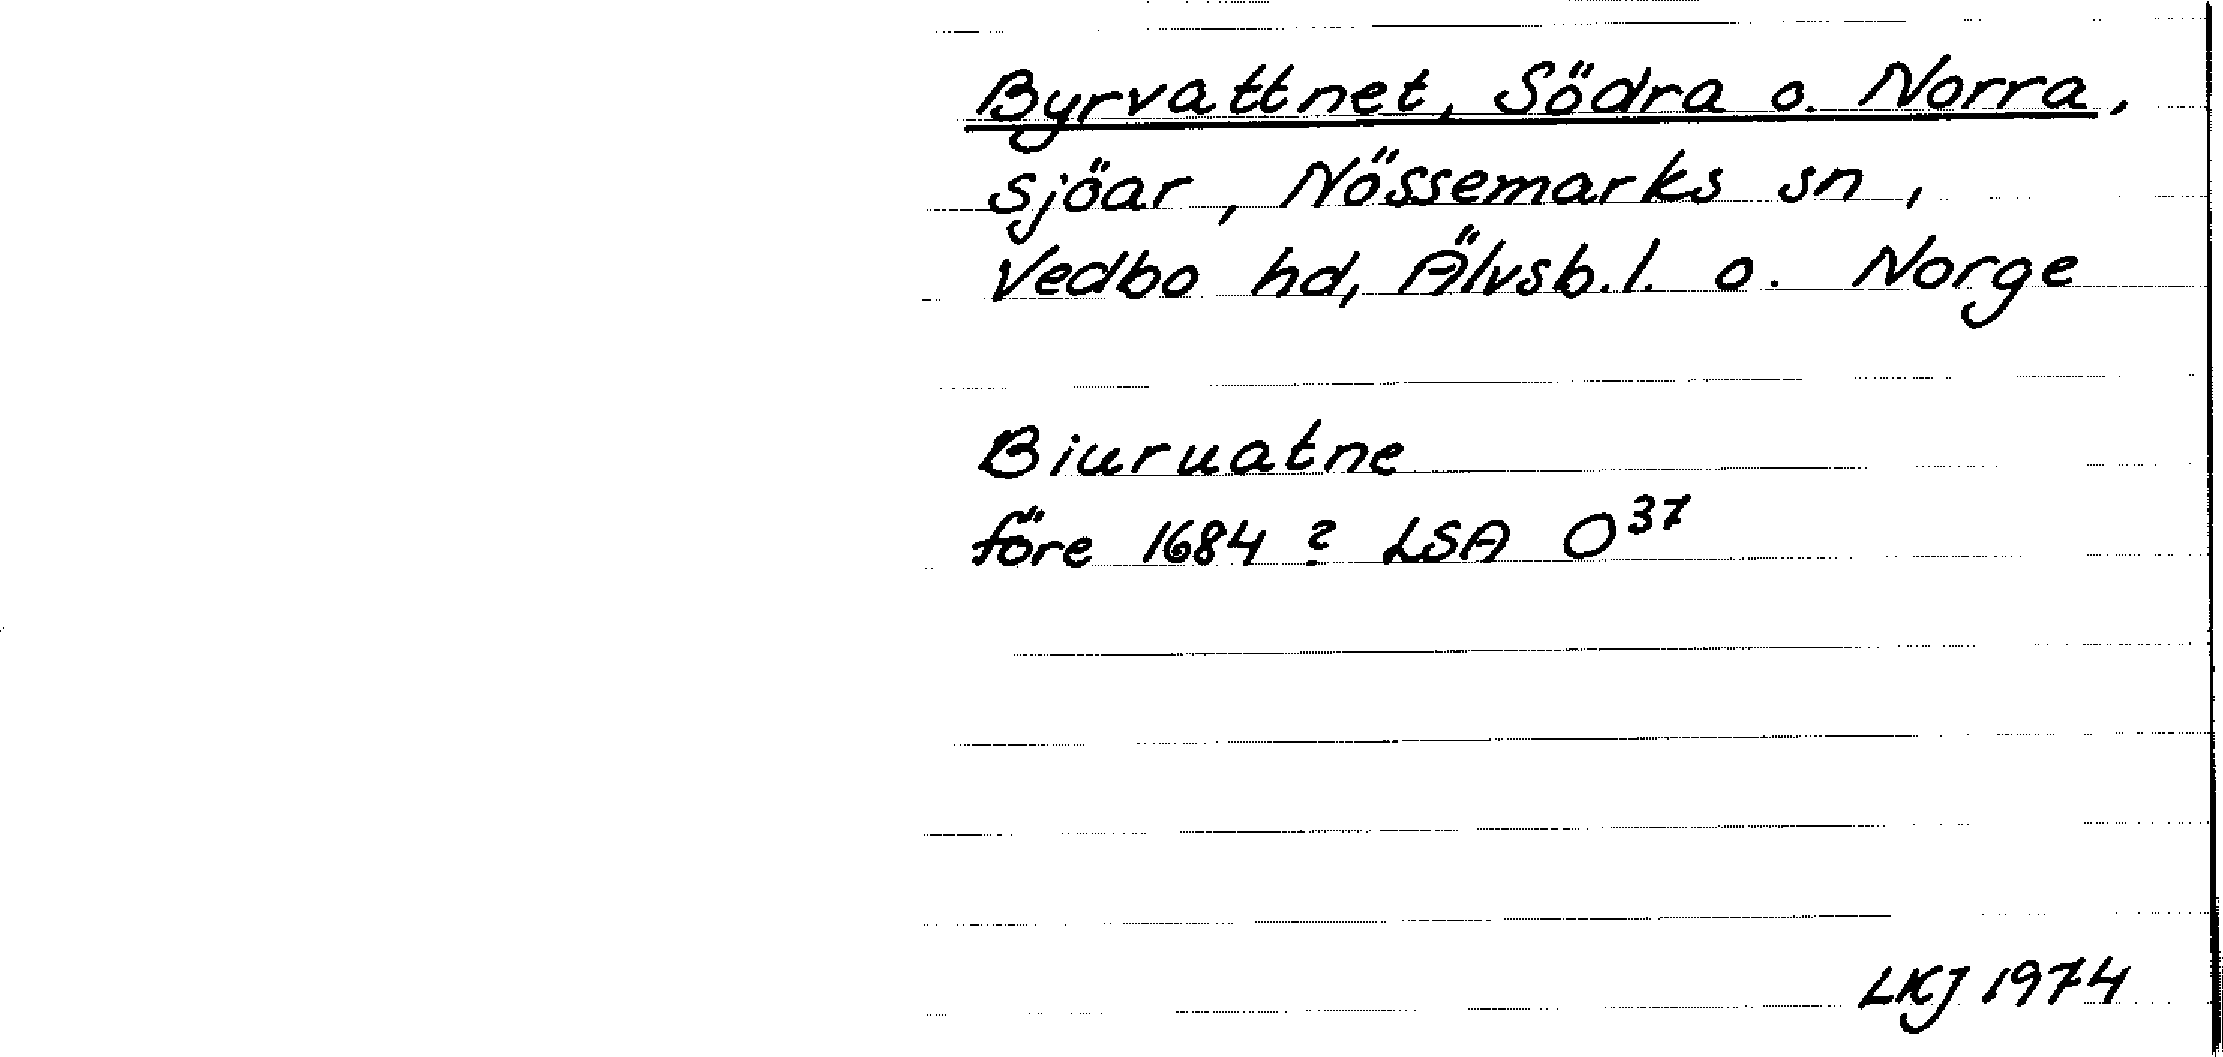 Byrvattnet, Södra o. Norra,
sjöar, Nössemarks sn,
Vedbo hd, Älvsb.l. o. Norge
Biuruatne
före 1684? LSA O³⁷
LKJ 1974